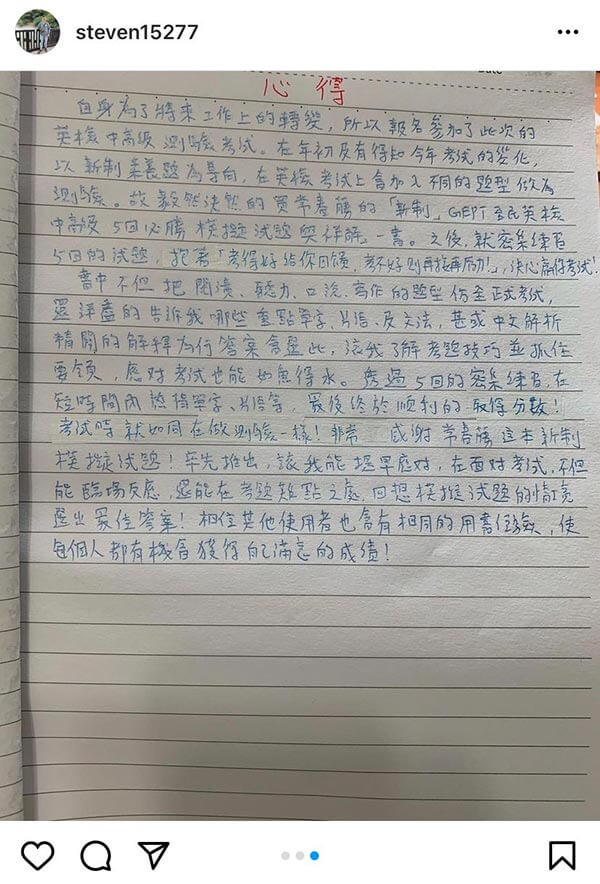 steven15277
Date
心得
自身為了將來工作上的轉變，所以報名參加了此次的
英檢中高級測驗考試。在年初及有得知今年考試的變化，
以新制素養題為導向，在英檢考試上會加入不同的題型做為
測驗。故毅然決然的買常春藤的「新制」GEPT全民英檢
中高級5回必勝模擬試題與詳解」一書。之後，就密集練習
5回的試題，抱著「考得好給你回饋，考不好則再接再厲！」，決心贏得考試！
書中不但把閱讀、聽力、口說、寫作的題型仿至正式考試，
還詳盡的告訴我哪些重點單字、片語、及文法，甚或中文解析
精闢的解釋為何答案會是此，讓我了解考題技巧並抓住
要領，應對考試也能如魚得水。透過5回的密集練習，在
短時間內熟悉單字、片語等，最後終於順利的取得分數！
考試時就如同在做測驗一樣！非常 感謝常春藤這本新制
模擬試題！率先推出，讓我能提早應對，在面對考試，不但
能臨場反應，還能在考題疑點之處，回想模擬試題的情境
選出最佳答案！相信其他使用者也會有相同的用書經驗，使
每個人都有機會獲得自己滿意的成績！